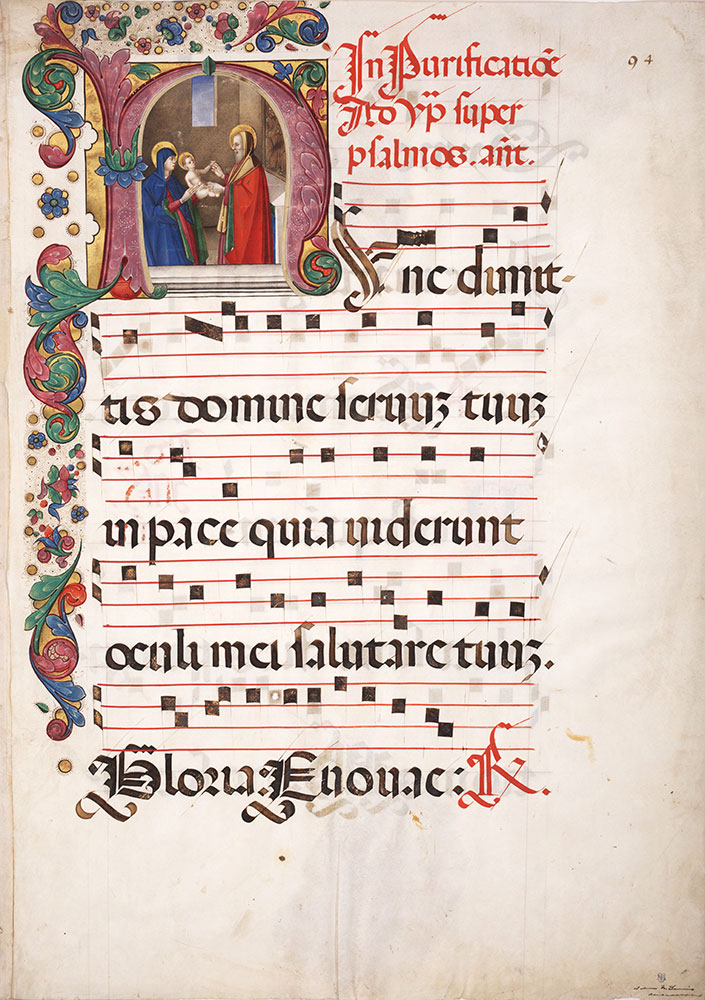 In Purificatiõe
94
Ad vp̃ super
psalmos. añt.
Nunc dimit-
tis domine seruuʒ tuuʒ
in pace quia uiderunt
oculi mei salutare tuuʒ.
Gloria: Euouae: R.